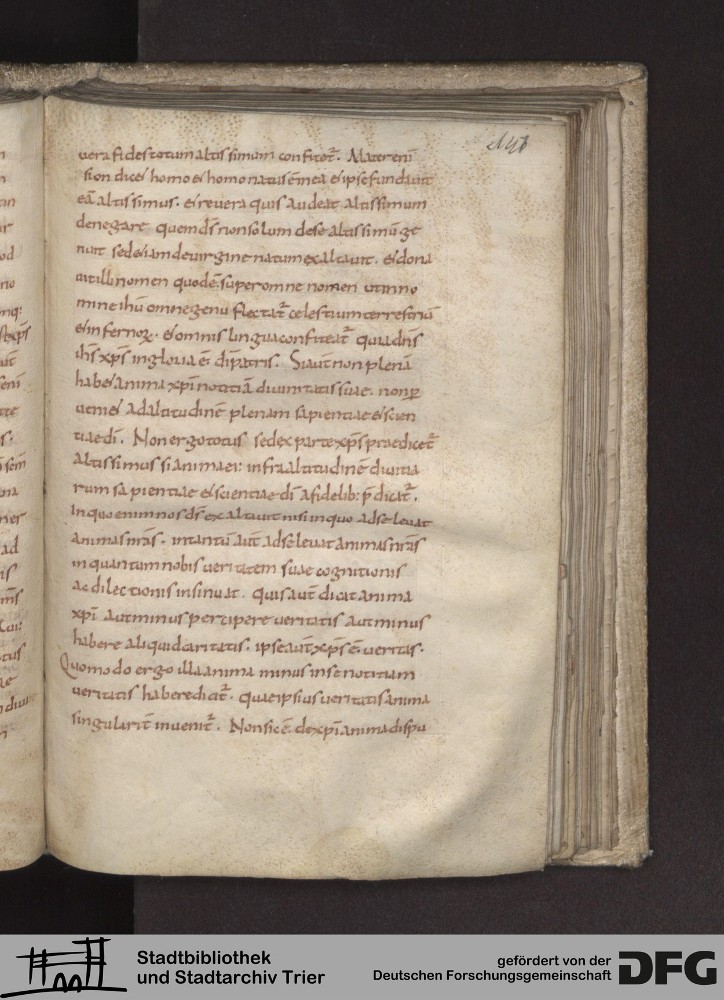 vera fides totum altissimum confitet᷑. Mater enī
sion dicet homo et homo natus ē in ea et ipse fundavit
eā altissimus. et revera quis audeat altissimum
denegare quem ds̄ non solum de se altissimū ge
nuit sed etiam de virgine natum exaltavit. et dona
vit illi nomen quod ē super omne nomen ut in no
mine ihū omne genu flectat᷑ celestium terrestriū
et infernoꝝ. et omnis lingua confiteat᷑ quia dn̄s
ih̄s xp̄s in gloria ē di patris. Si aut̄ non plenā
habet anima xp̄i notitiā divinitatis suae. non ꝑ
venit et ad altitudinē plenam sapientiae et scien
tiae dī. Non ergo totus sed ex parte xp̄s praedicet᷑
altissimus si anima ei: infra altitudinē divitia
rum sapientiae et scientiae dī a fidelib: p̄dicat᷑.
In quo enim nos ds̄ exaltavit nisi in quo ad se levat
animas nr̄as. in tantū aut̄ ad se levat animas nr̄as
in quantum nobis veritatem suae cognitionis
ac dilectionis insinuat. quis aut̄ dicat anima
xp̄i aut minus percipere veritatis aut minus
habere aliquid caritatis. ipse aut̄ xp̄s ē veritas.
Quomodo ergo illa anima minus in se notitiam
veritatis habere dicit᷑. quae ipsius veritatis anima
singularit̄ invenit᷑. Non sic ē de xp̄i anima dispu
Stadtbibliothek
und Stadtarchiv Trier
gefördert von der
Deutschen Forschungsgemeinschaft
DFG